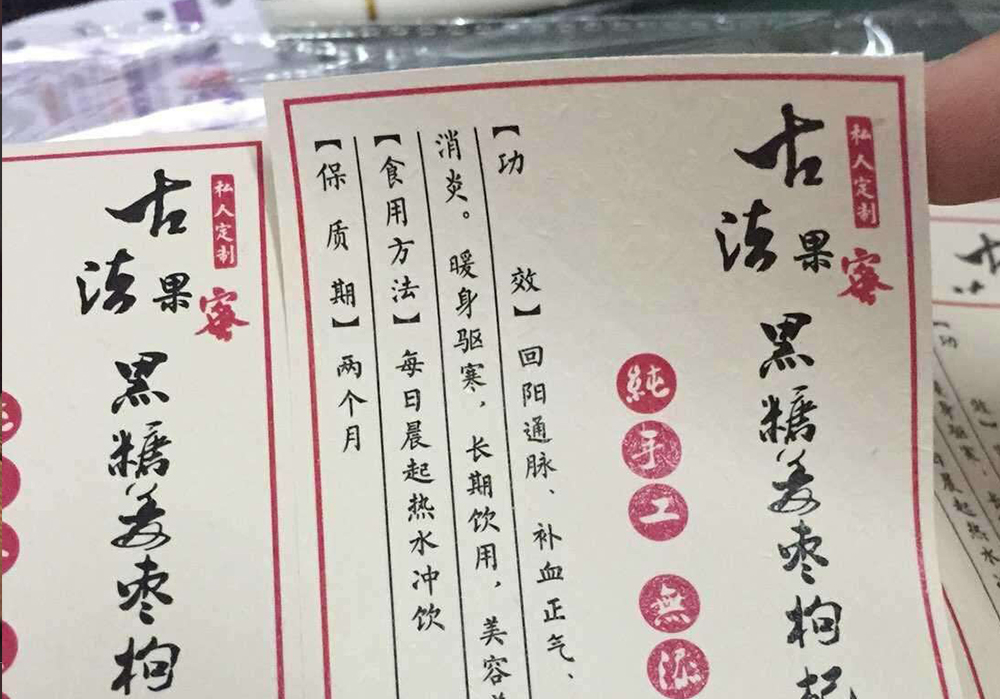 私人定制
古法果蜜
黑糖姜枣枸杞
純手工
無添
【功效】回阳通脉、补血正气、
消炎。暖身驱寒，长期饮用，美容
【食用方法】每日晨起热水冲饮
【保质期】两个月
私人定制
古法果蜜
黑糖姜枣枸